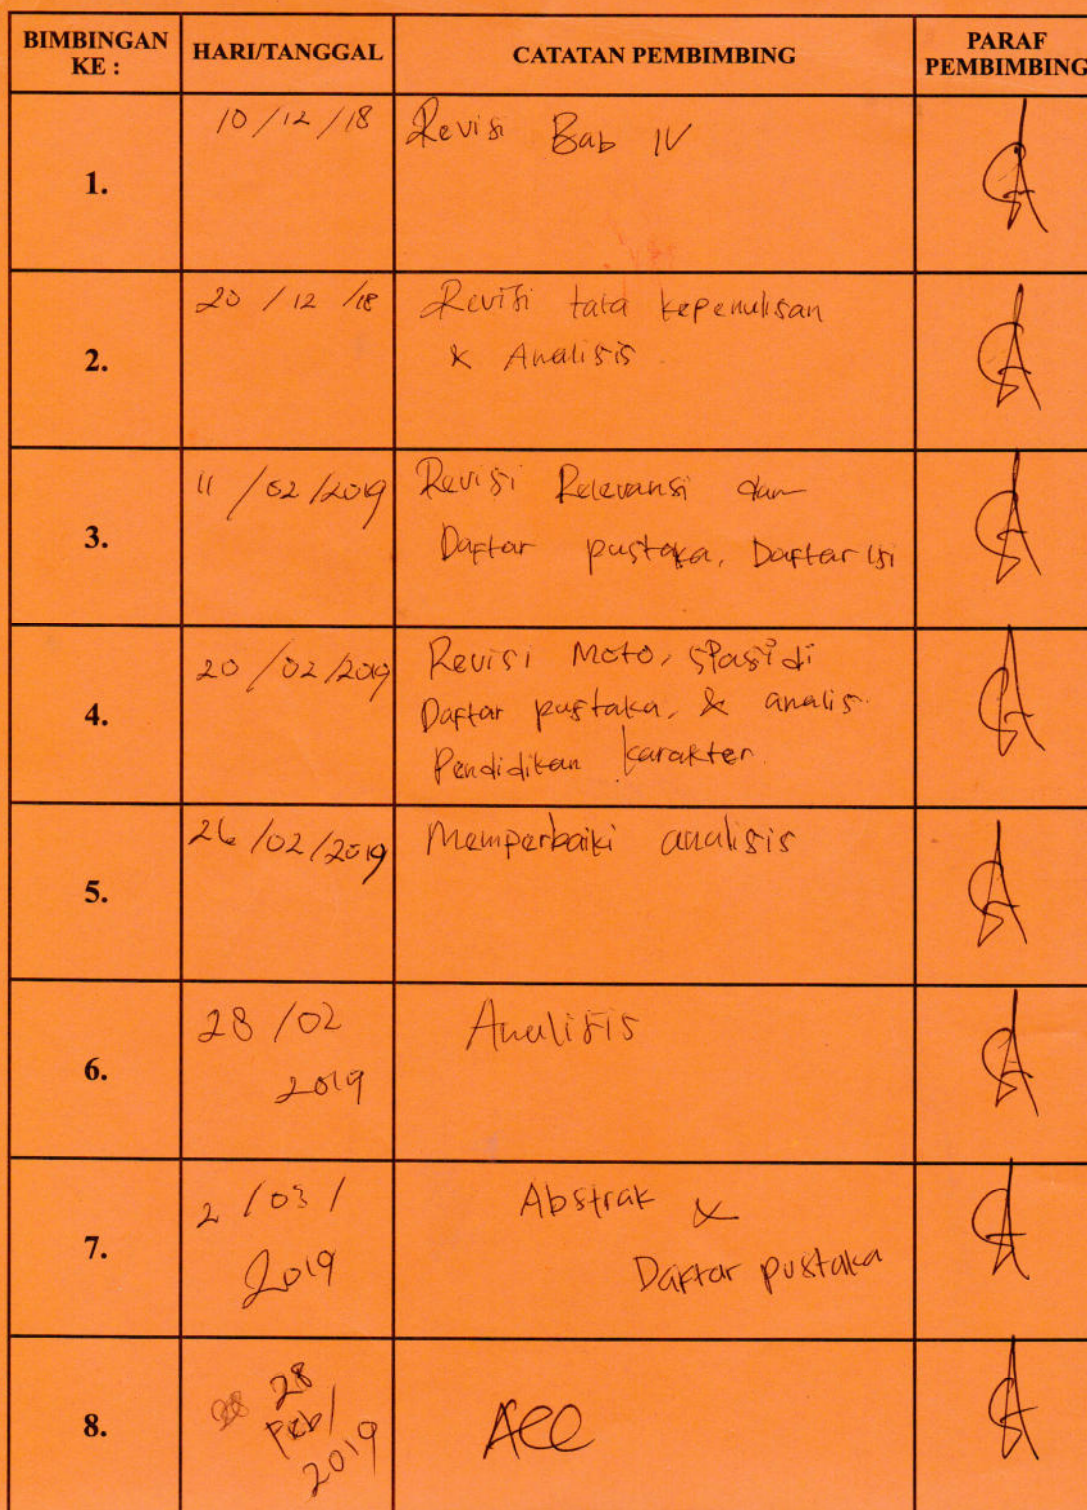 BIMBINGAN KE : HARI/TANGGAL CATATAN PEMBIMBING PARAF PEMBIMBING
1. 10/12/18 Revisi Bab IV
2. 20/12/18 Revisi tata kepenulisan
& Analisis
3. 11/02/2019 Revisi Relevansi dan
Daftar pustaka, Daftar isi
4. 20/02/2019 Revisi Moto, spasi di
Daftar pustaka, & analis
Pendidikan karakter.
5. 26/02/2019 Memperbaiki analisis
6. 28/02 Analisis
2019
7. 2/03/ Abstrak &
2019 Daftar pustaka
8. 28 ACC
Peb/
2019